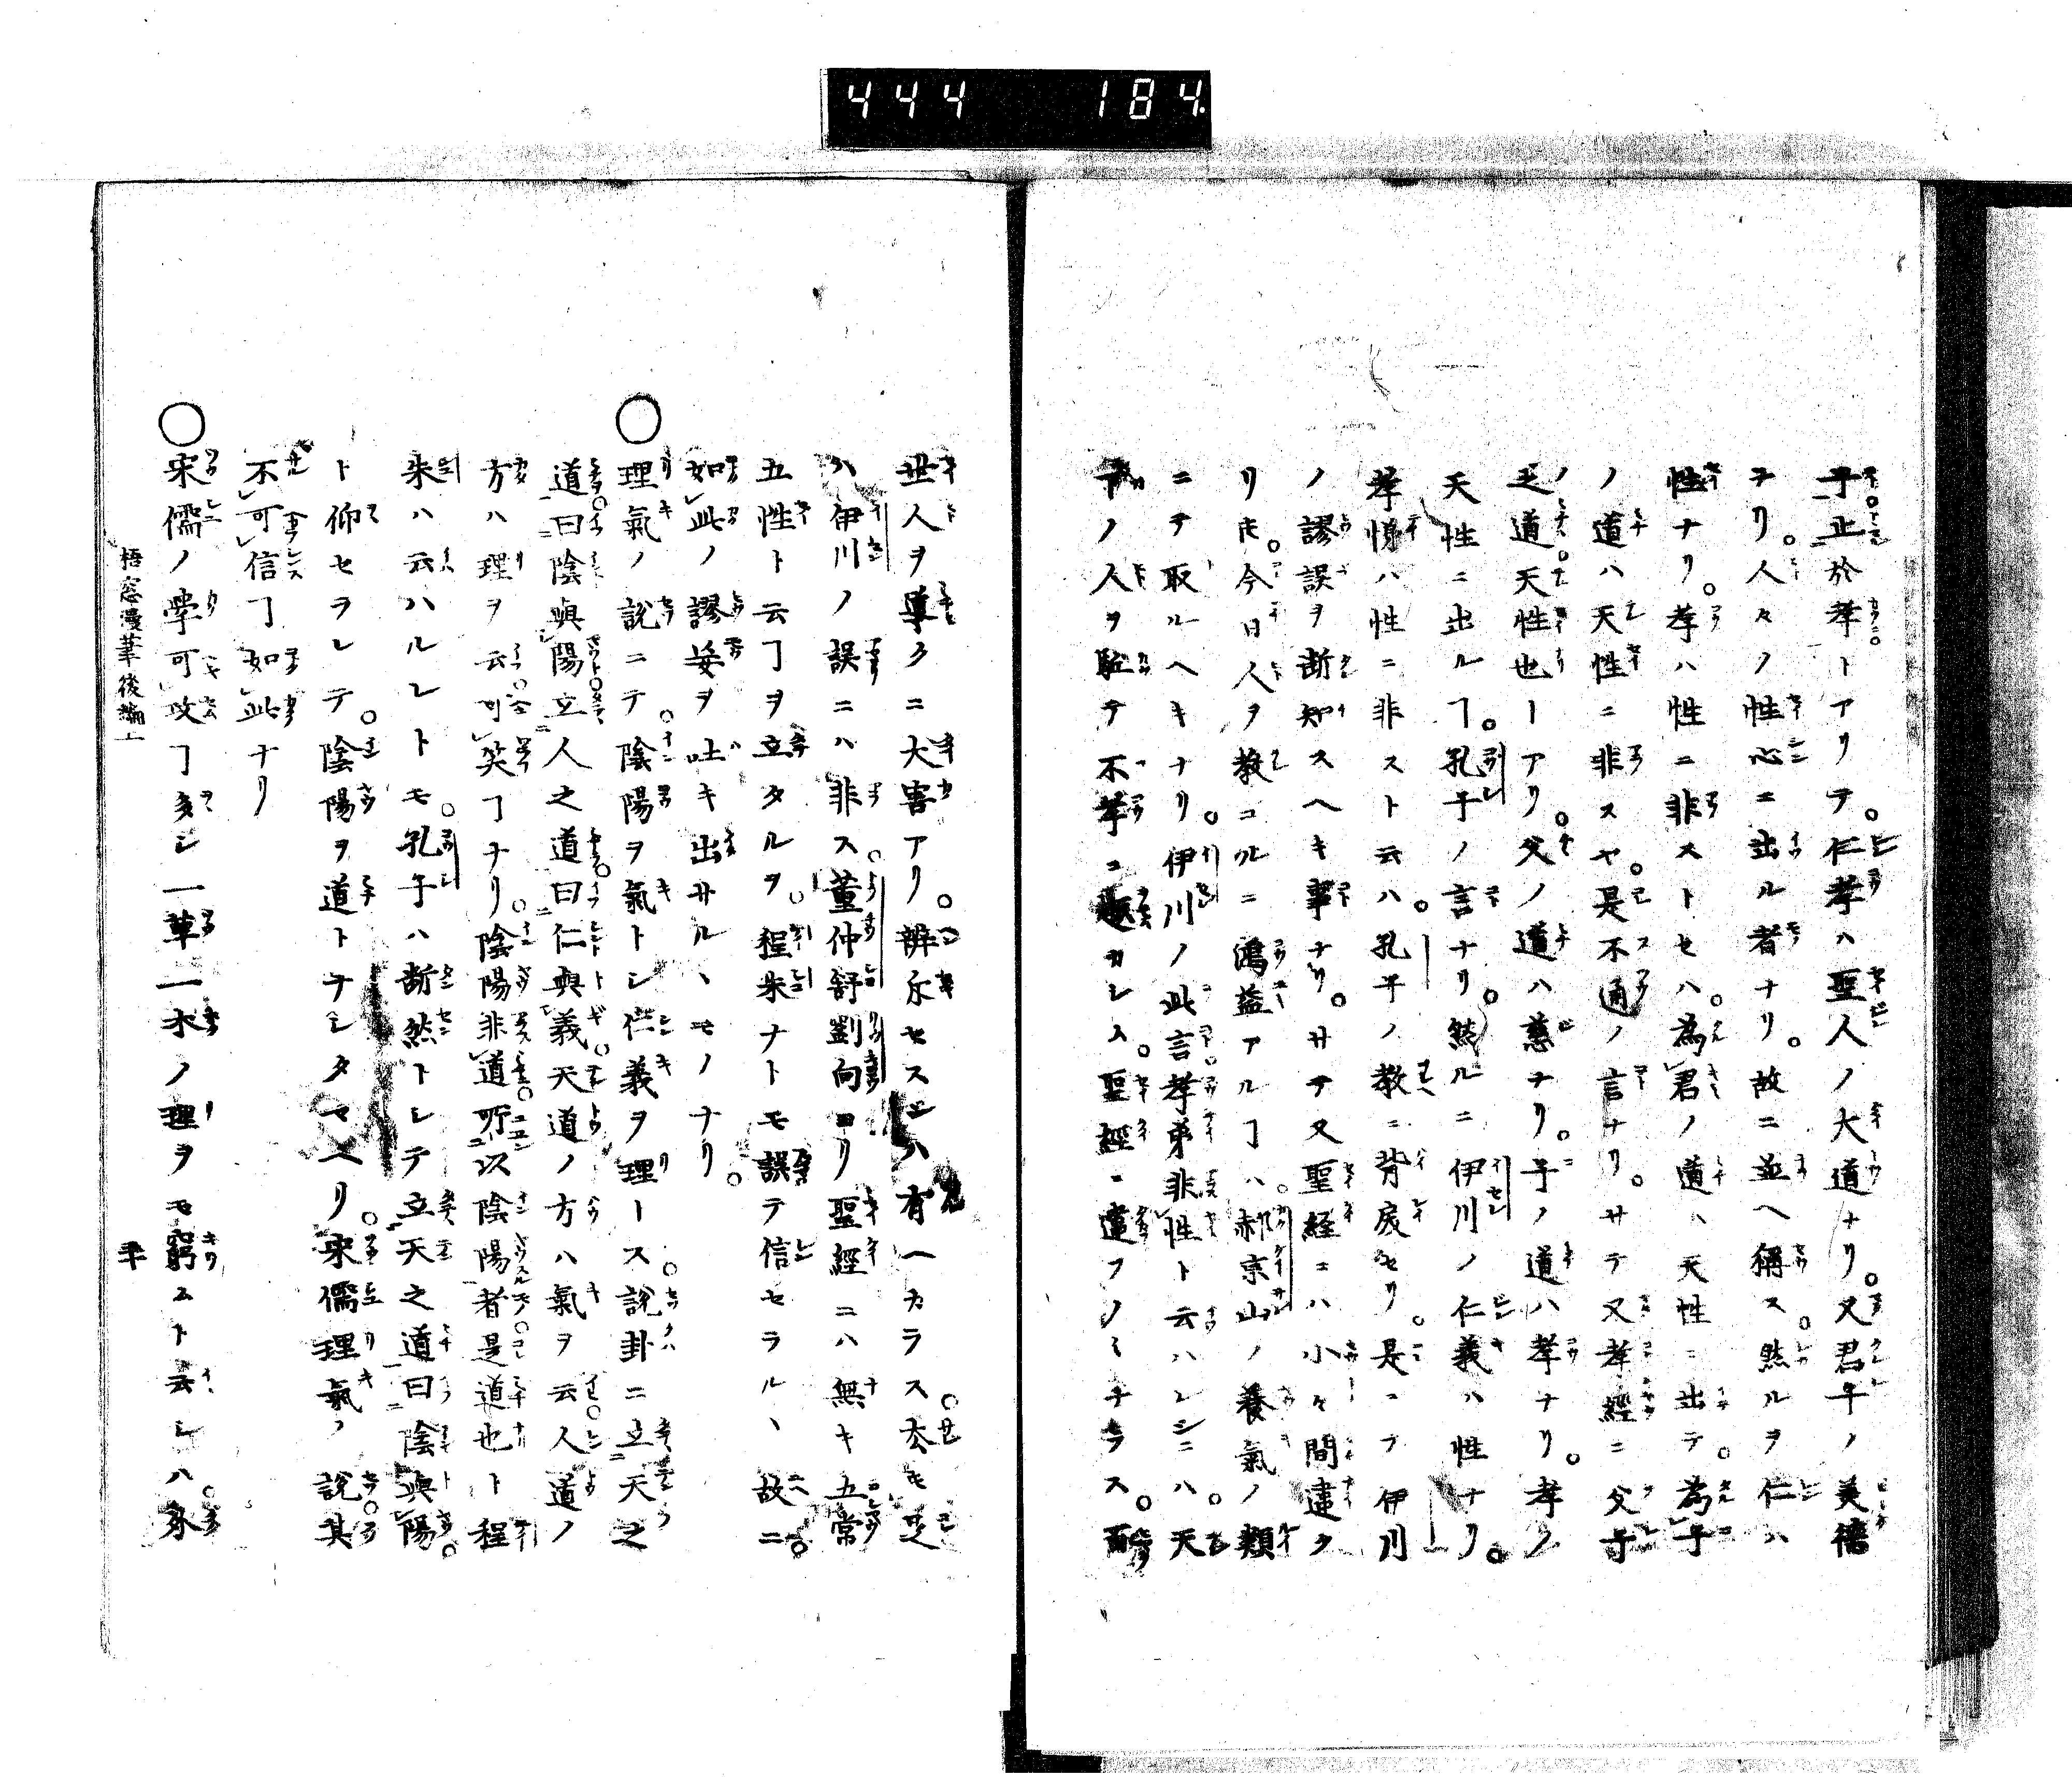 444 184
子止於孝トアリテ。仁孝ハ聖人ノ大道ナリ。又君子ノ美德
ナリ。人々ノ性心ニ出ル者ナリ。故ニ並ヘ稱ス。然ルヲ仁ハ
性ナリ。孝ハ性ニ非ストセハ。為君ノ道ハ天性ニ出テ。為子
ノ道ハ天性ニ非スヤ。是不通ノ言ナリ。サテ又孝經ニ父子
之道天性也ーアリ。父ノ道ハ慈ナリ。子ノ道ハ孝ナリ。孝ノ
天性ニ出ルヿ。孔子ノ言ナリ。然ルニ伊川ノ仁義ハ性ナリ。
孝悌ハ性ニ非スト云ハ。孔子ノ教ニ背戾セリ。是ニテ伊川
ノ謬誤ヲ斷知スヘキ事ナリ。サテ又聖経ニハ小々間違ク
リ𪜈。今日人ヲ教コルニ鴻益アルヿハ。郝京山ノ養氣ノ類
ニテ取ルヘキナリ。伊川ノ此言孝弟非性ト云ハレシニハ。天
下ノ人ヲ駈テ不孝ニ趣カシム。聖經ニ違フノミナラス。酷
世人ヲ導クニ大害アリ。辨斥セスンハ有ヘカラス。太モ是
ハ伊川ノ誤ニハ非ス。董仲舒劉向ヨリ聖經ニハ無キ五常
五性ト云ヿヲ立タルヲ。程朱ナトモ誤テ信セラルヽ故ニ。
如此ノ謬妄ヲ吐キ出サルヽモノナリ。
○理氣ノ說ニテ。陰陽ヲ氣トシ仁義ヲ理ース。說卦ニ立天之
道曰陰與陽立人之道曰仁與義天道ノ方ハ氣ヲ云人道ノ
方ハ理ヲ云可笑ヿナリ。陰陽非道所以陰陽者是道也ト程
朱ハ云ハルレトモ。孔子ハ斷然トシテ立天之道曰陰與陽。
ト仰セラレテ。陰陽ヲ道トナシタマヘリ。宋儒理氣ノ說其
不可信ヿ如此ナリ
○宋儒ノ學可攻ヿ多シ一草一木ノ理ヲモ窮ムト云レハ。身
梧窓漫筆後編上